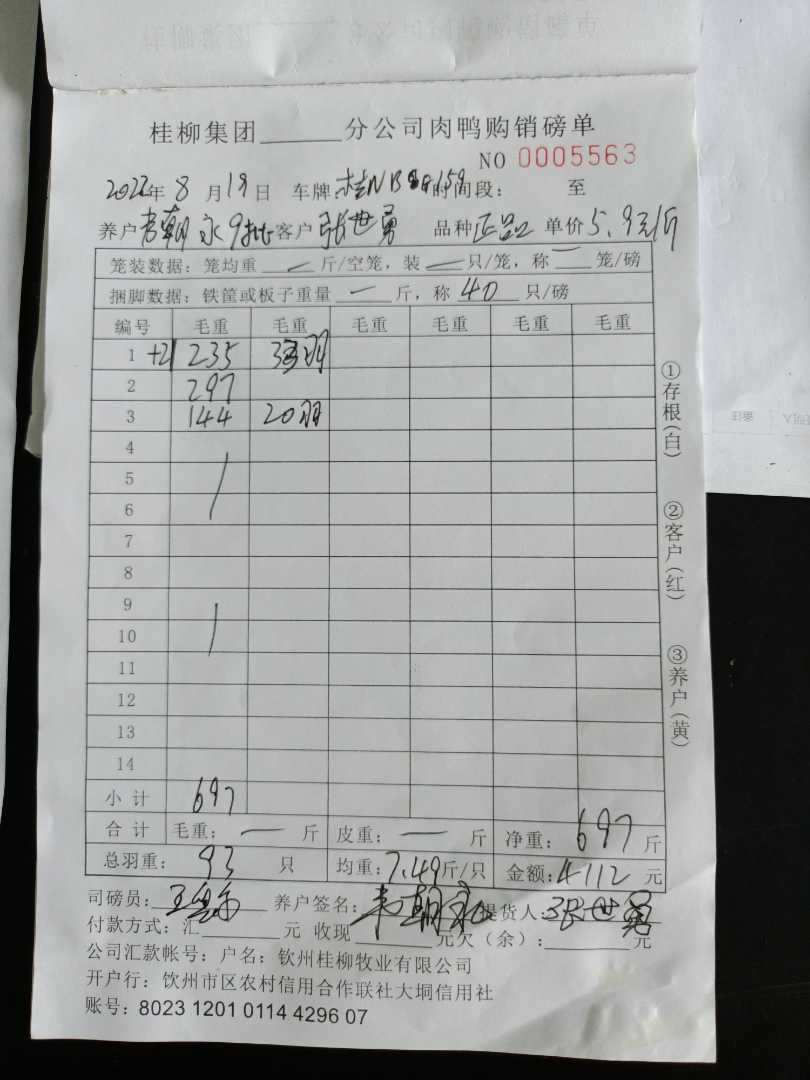 桂柳集团______分公司肉鸭购销磅单
NO 0005563
2022年 8 月 19 日 车牌: 桂N 时间段: 至
养户 韦朝永 9批 客户 张世勇 品种 正品 单价 5.9元/斤
笼装数据: 笼均重 — 斤/空笼, 装 — 只/笼, 称 — 笼/磅
捆脚数据: 铁筐或板子重量 — 斤, 称 40 只/磅
编号 毛重 毛重 毛重 毛重 毛重 毛重
1 +21 235 33羽
2 297
3 144 20羽
4
5
6
7
8
9
10
11
12
13
14
小计 697
合计 毛重: — 斤 皮重: — 斤 净重: 697 斤
总羽重: 93 只 均重: 7.49 斤/只 金额: 4112 元
司磅员: 养户签名: 韦朝永 提货人: 张世勇
付款方式: 汇______元 收现______元欠(余): ______元
公司汇款帐号: 户名: 钦州桂柳牧业有限公司
开户行: 钦州市区农村信用合作联社大垌信用社
账号: 8023 1201 0114 4296 07
①存根(白) ②客户(红) ③养户(黄)